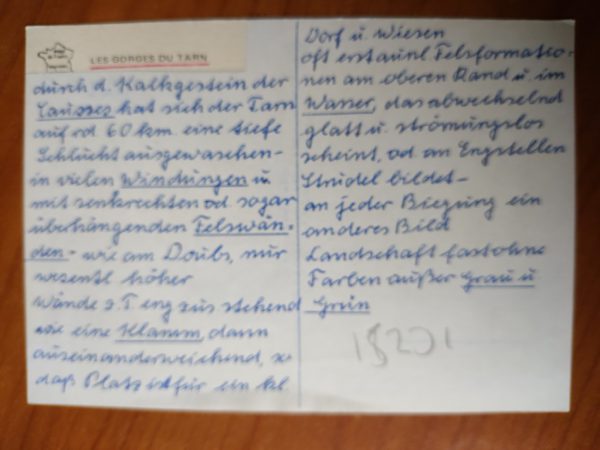 LES GORGES DU TARN
durch d. Kalkgestein der
Causses hat sich der Tarn
auf rd 60 km eine tiefe
Schlucht ausgewaschen -
in vielen Windungen u
mit senkrechten od sogar
überhängenden Felswän-
den - wie am Doubs, nur
wesentl höher
Wände z.T eng zus stehend
wie eine Klamm, dann
auseinanderweichend, so
daß Platz ist für ein kl
Dorf u. Wiesen
oft erstaunl Felsformatio-
nen am oberen Rand u. im
Wasser, das abwechselnd
glatt u. strömungslos
scheint, od. an Engstellen
Strudel bildet -
an jeder Biegung ein
anderes Bild
Landschaft fast ohne
Farben außer Grau u
Grün